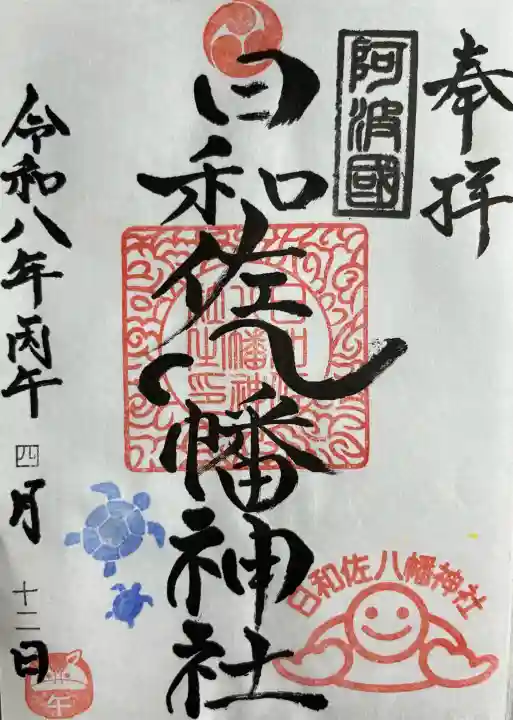 奉拝
阿波國
日和佐八幡神社
日和佐八幡神社
令和八年丙午四月十二日
午